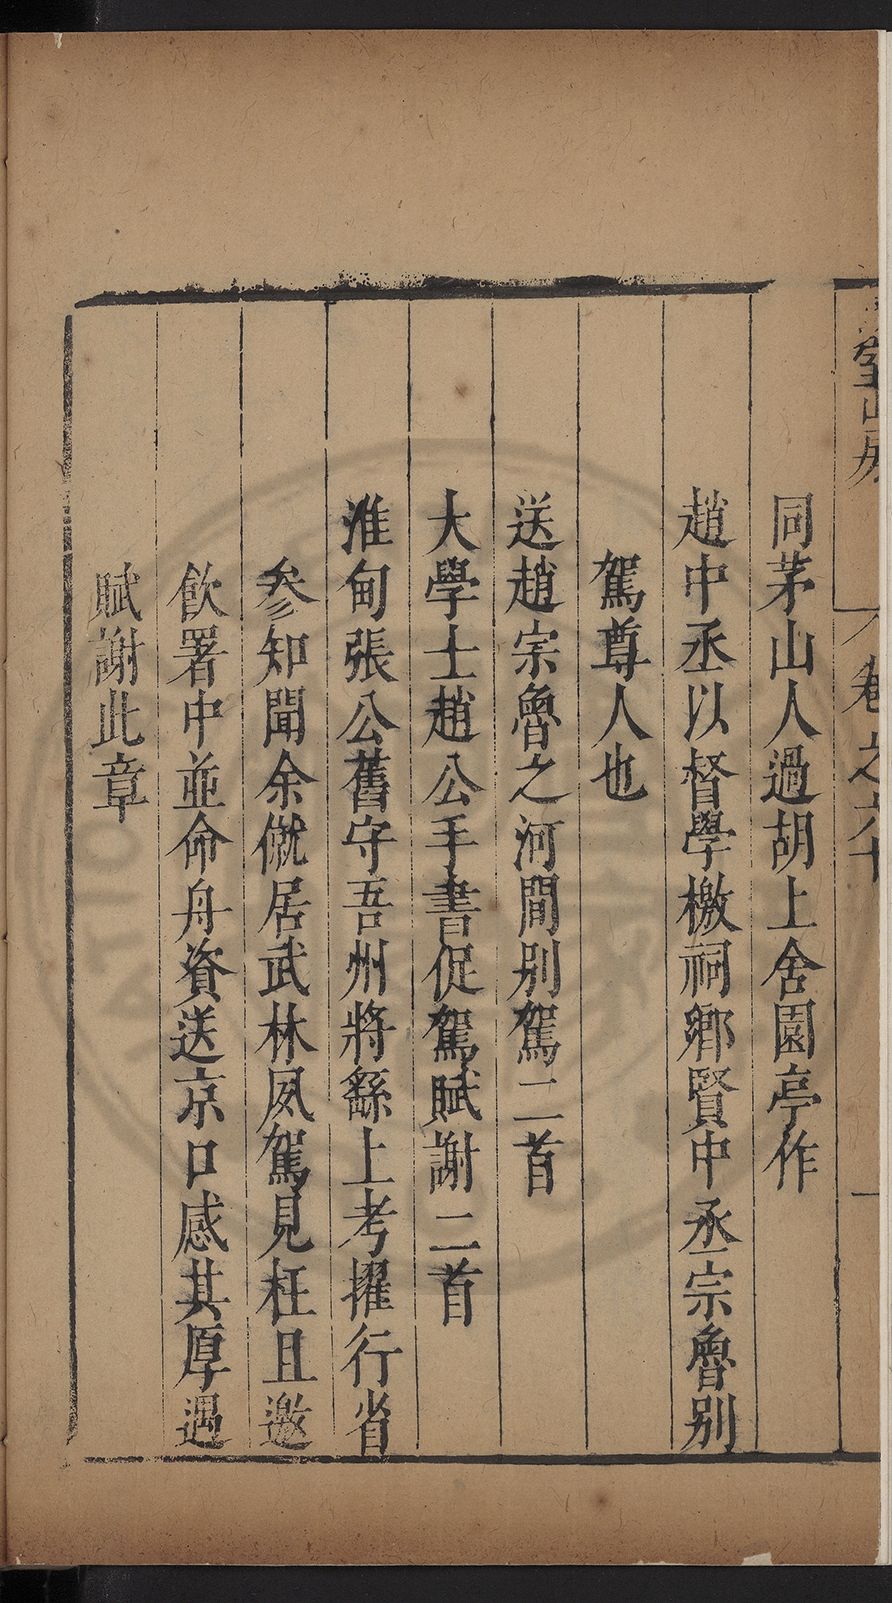 同茅山人過胡上舍園亭作
趙中丞以督學檄祠鄉賢中丞宗魯別
駕尊人也
送趙宗魯之河間別駕二首
大學士趙公手書促駕賦謝二首
淮甸張公舊守吾州將繇上考擢行省
叅知聞余僦居武林夙駕見枉且邀
飲署中並命舟資送京口感其厚遇
賦謝此章